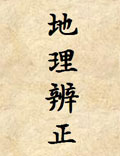 地理辨正